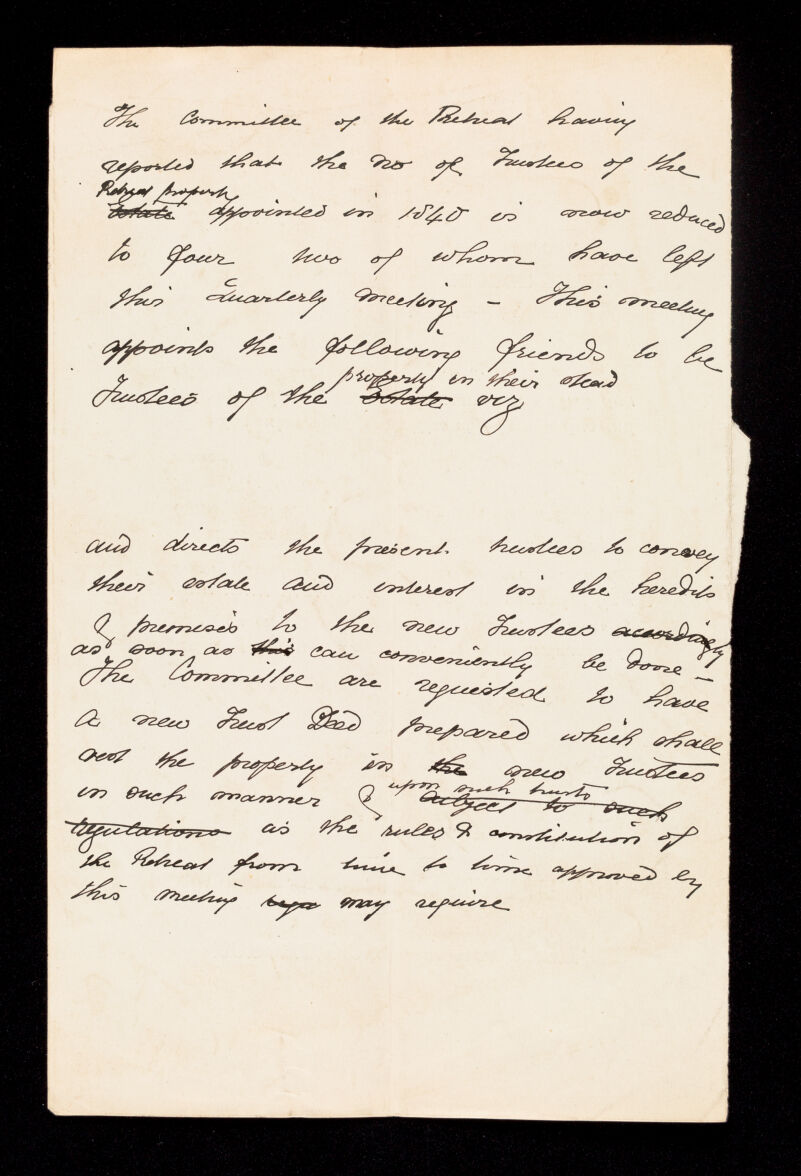 The Committee of the Retreat having
reported that the no of Trustees of the
Retreat property
estate appointed in 1848 is now reduced
to four two of whom have left
this Quarterly meeting – This meeting
appoints the following friends to be
property in their stead
Trustees of the estate viz
and directs the present trustees to convey
their estate and interest in the heredits
& premises to the new Trustees accordingly
as soon as this can conveniently be done –
The Committee are requested to have
a new Trust Deed prepared which shall
vest the property in the new Trustees
upon such trusts
in such manner & subject to such
regulations as the rules & constitution of
the Retreat from time to time approved by
this meeting may require